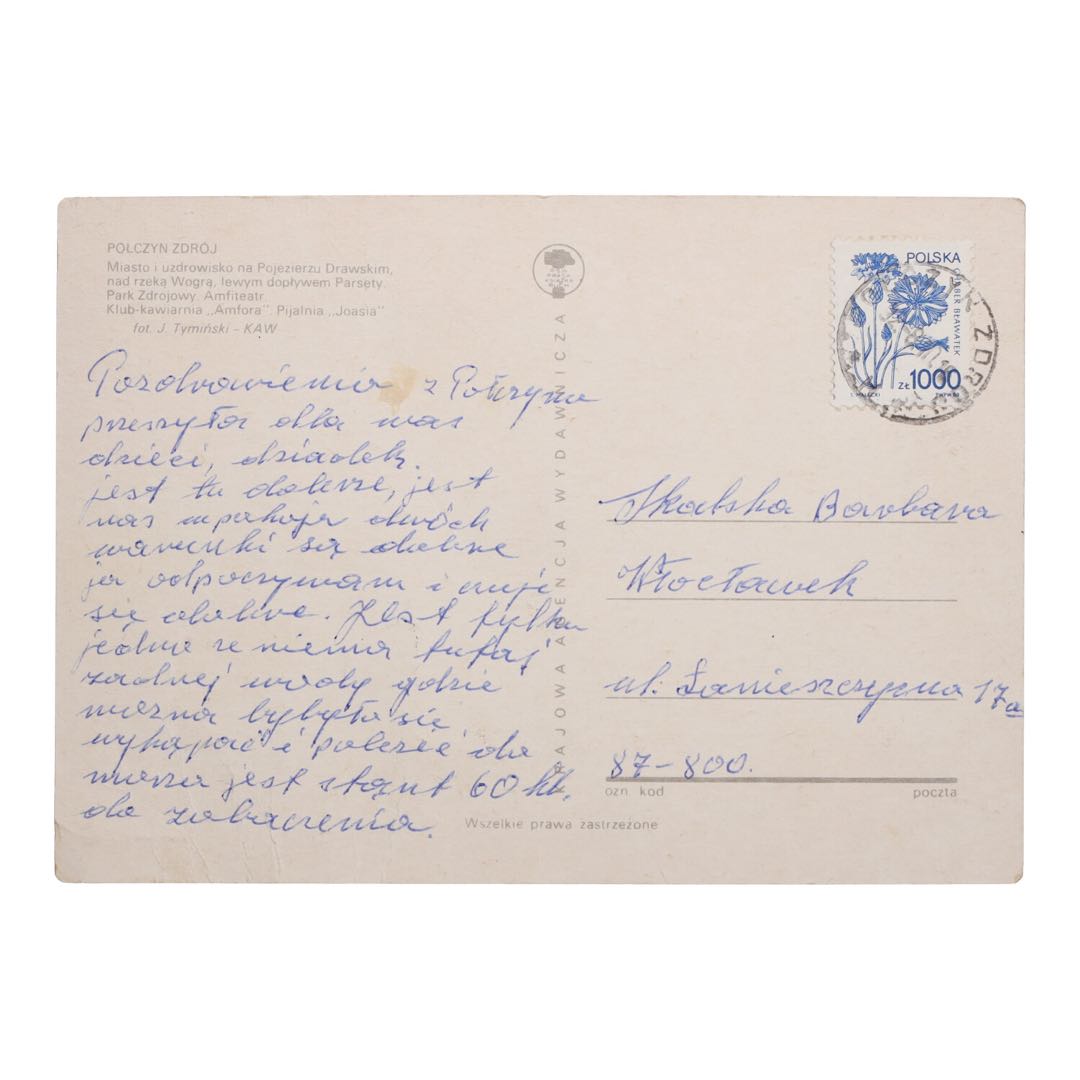 POŁCZYN ZDRÓJ
Miasto i uzdrowisko na Pojezierzu Drawskim,
nad rzeką Wogrą, lewym dopływem Parsęty.
Park Zdrojowy. Amfiteatr
Klub-kawiarnia „Amfora”. Pijalnia „Joasia”
fot. J. Tymiński - KAW
Pozdrowienia z Połczyna
przesyła dla was
dzieci, dziadek.
jest tu dobrze, jest
nas w pokoju dwóch
warunki są dobre
ja odpoczywam i czuje
się dobrze. Jest tylko
jedno ze niema tutaj
zadnej wody gdzie
mozna byłoby sie
wykąpać i poleżeć do
morza jest stąnt 60 kl.
do zobaczenia.
KRAJOWA AGENCJA WYDAWNICZA
Wszelkie prawa zastrzeżone
POLSKA
CHABER BŁAWATEK
ZŁ 1000
S. MAŁECKI
PWPW 89
ZDRÓJ
Skalska Barbara
Włocławek
ul. Łanieszczyzna 17a
87-800.
ozn. kod
poczta